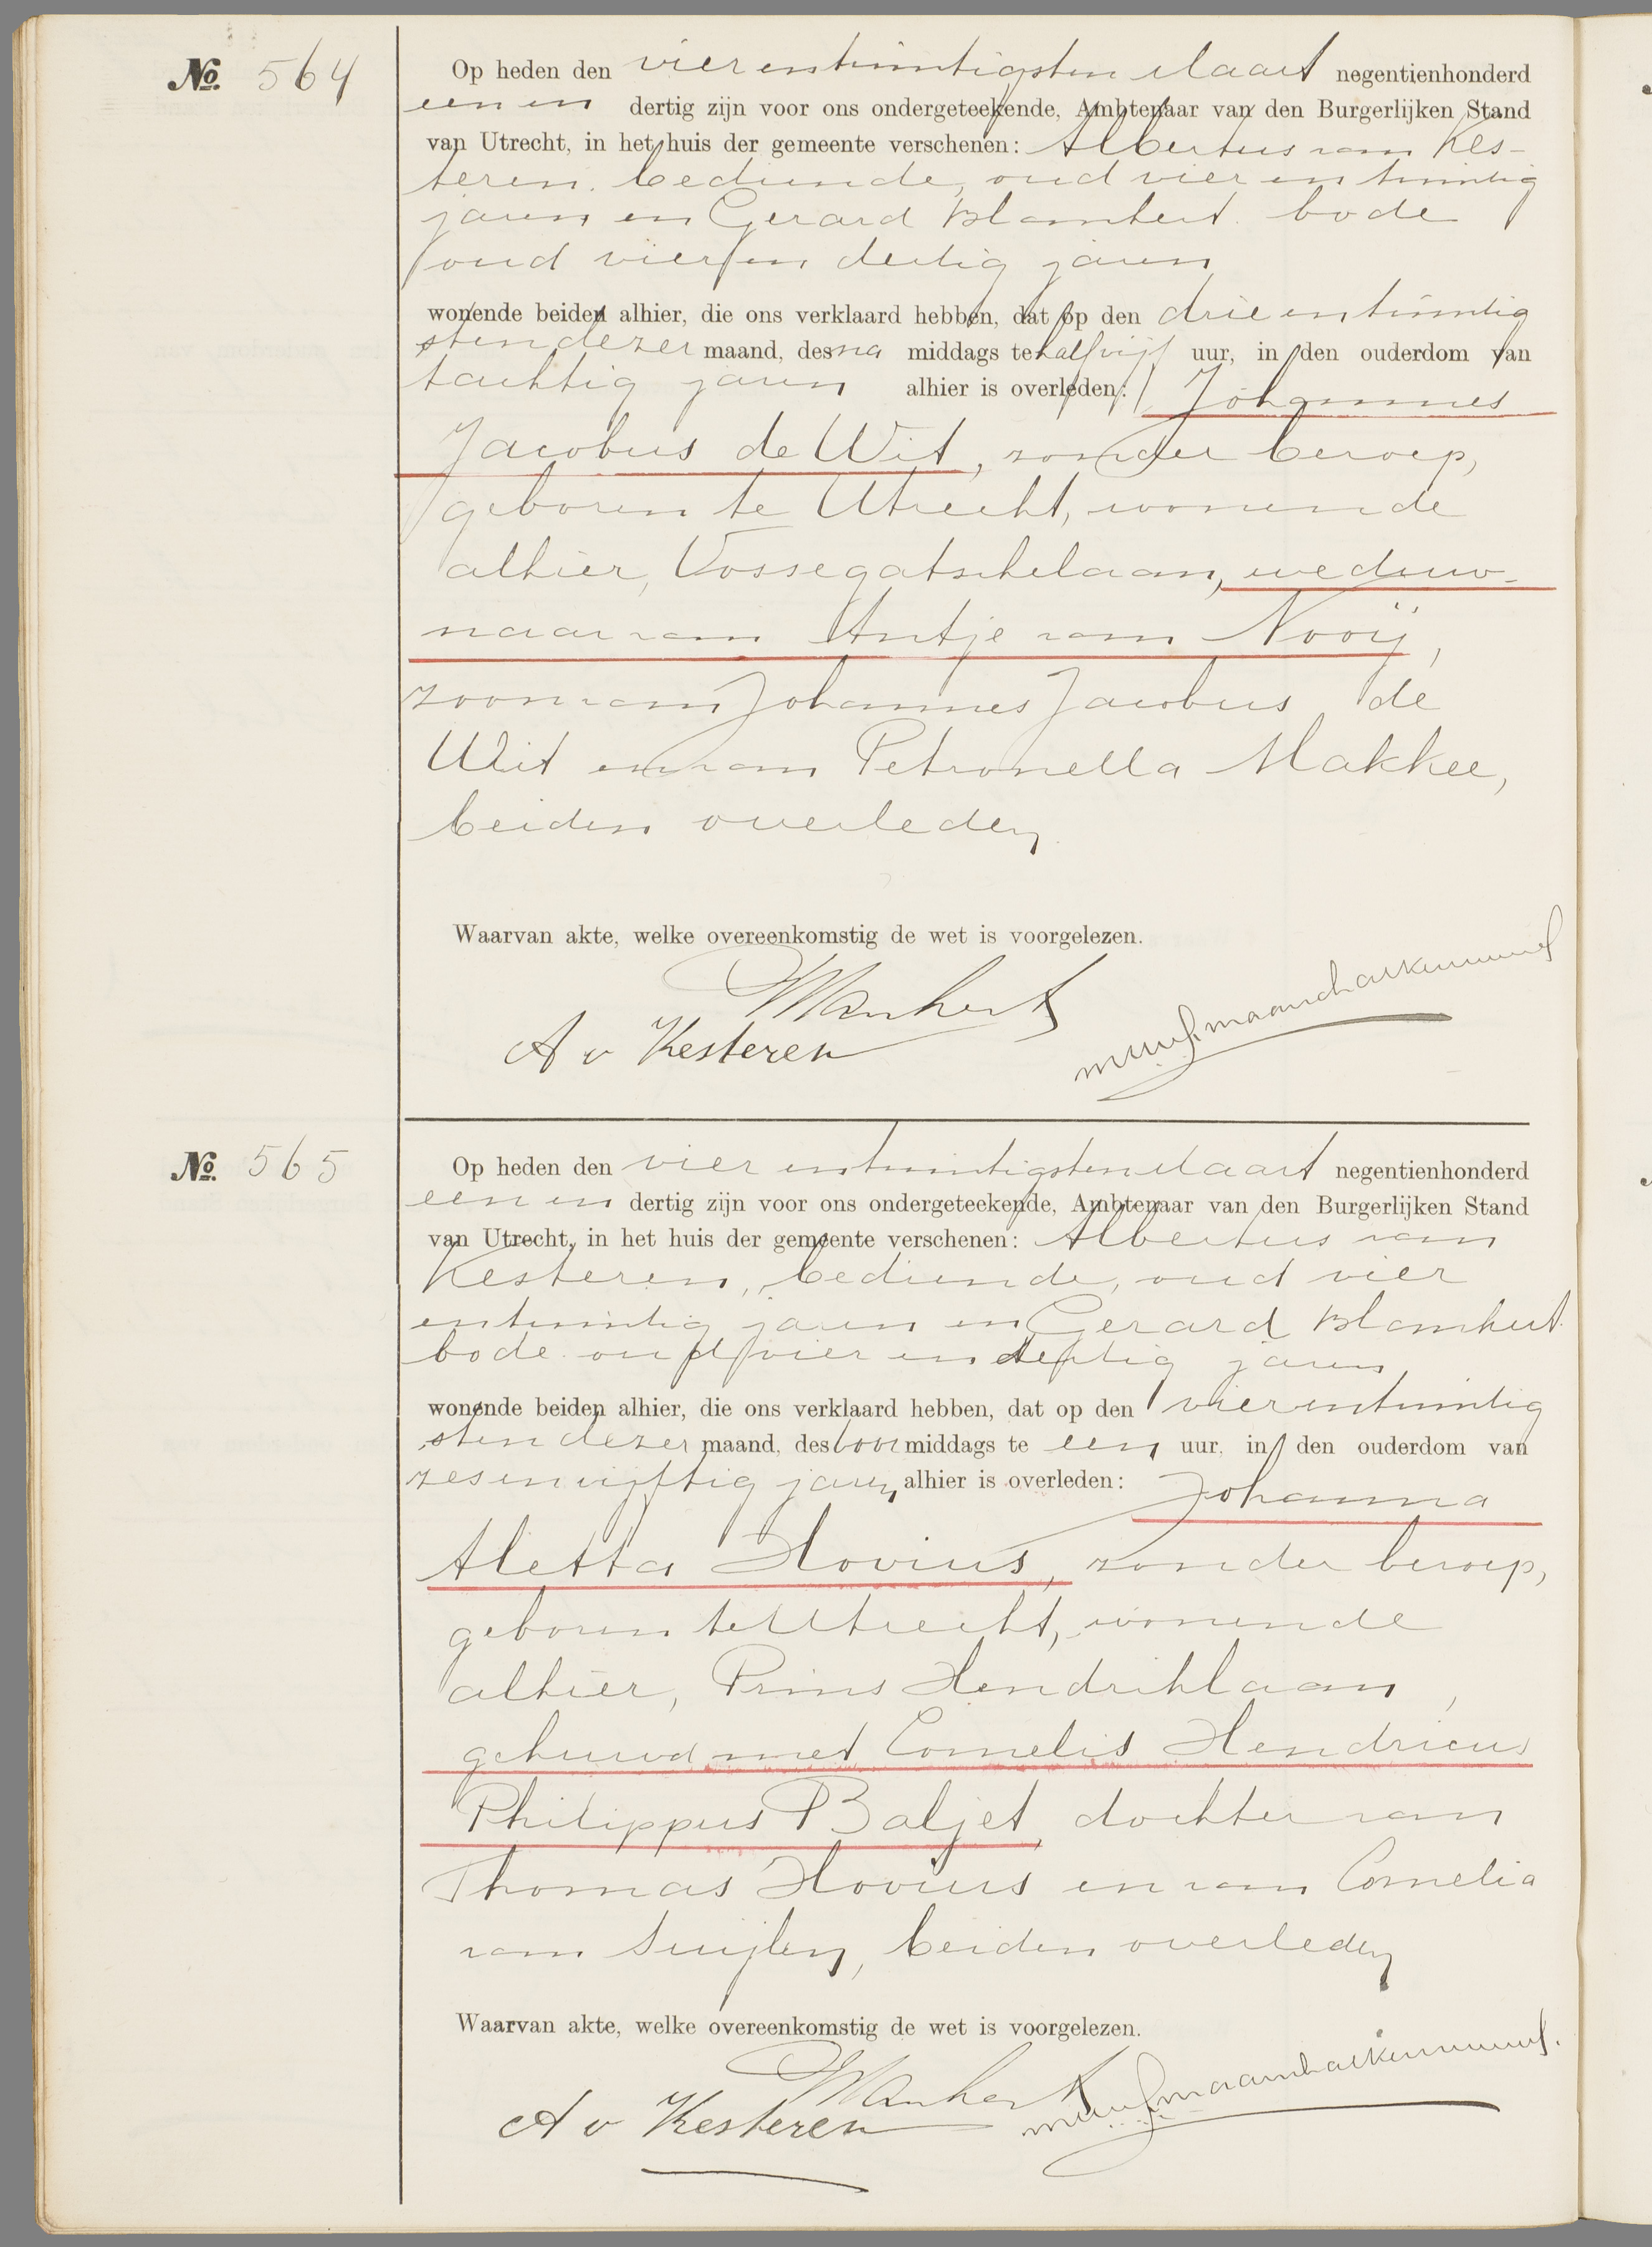 No. 564
Op heden den vierentwintigsten Maart negentienhonderd
een en dertig zijn voor ons ondergeteekende, Ambtenaar van den Burgerlijken Stand
van Utrecht, in het huis der gemeente verschenen: Albertus van Kes-
teren, bediende, oud vier en twintig
jaren en Gerard Blanhert bode
oud vier en dertig jaren
wonende beiden alhier, die ons verklaard hebben, dat op den drieentwintig
sten dezer maand, des na middags te half vijf uur, in den ouderdom van
tachtig jaren alhier is overleden: Johannes
Jacobus de Wit, zonder beroep,
geboren te Utrecht, wonende
alhier, Vossegatschelaan, weduw-
naar van Antje van Nooij,
zoon van Johannes Jacobus de
Wit en van Petronella Makkee,
beiden overleden
Waarvan akte, welke overeenkomstig de wet is voorgelezen.
A v Kesteren
No. 565
Op heden den vier entwintigsten Maart negentienhonderd
een en dertig zijn voor ons ondergeteekende, Ambtenaar van den Burgerlijken Stand
van Utrecht, in het huis der gemeente verschenen: Albertus van
Kesteren, bediende, oud vier
entwintig jaren en Gerard Blanhert
bode oud vier en dertig jaren
wonende beiden alhier, die ons verklaard hebben, dat op den vierentwintig
sten dezer maand, des voor middags te een uur, in den ouderdom van
zesenvijftig jaren alhier is overleden: Johanna
Aletta Hovius, zonder beroep,
geboren te Utrecht, wonende
alhier, Prins Hendriklaan,
gehuwd met Cornelis Hendricus
Philippus Baljet, dochter van
Thomas Hovius en van Cornelia
van Suijlen, beiden overleden
Waarvan akte, welke overeenkomstig de wet is voorgelezen.
A v Kesteren